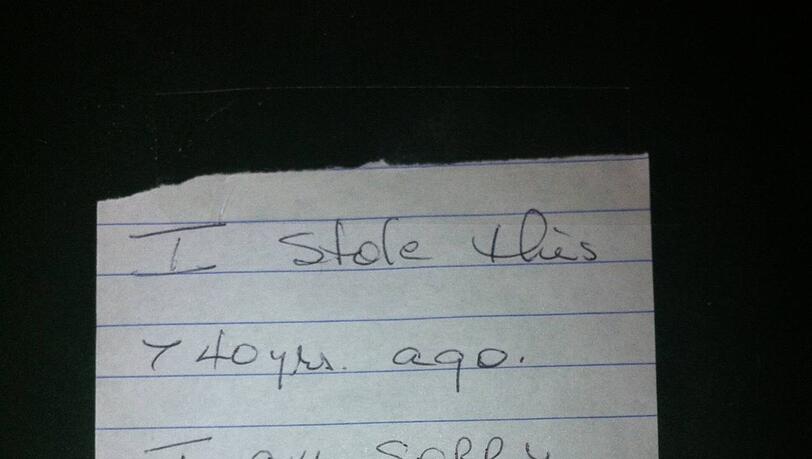 I stole this
> 40 yrs. ago.
I am SORRY